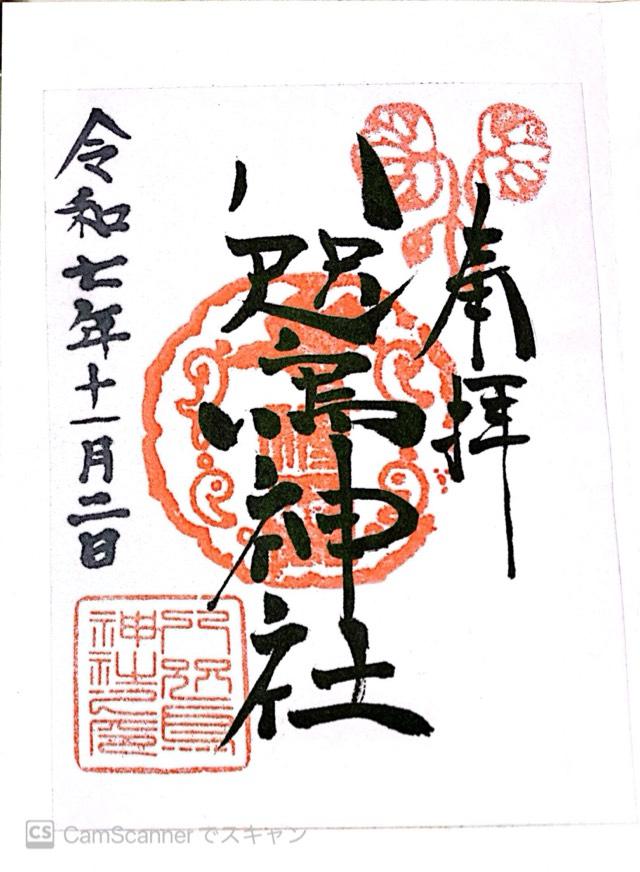 奉拝
八咫烏神社
令和七年十一月二日
八咫烏
神社
CS CamScanner でスキャン